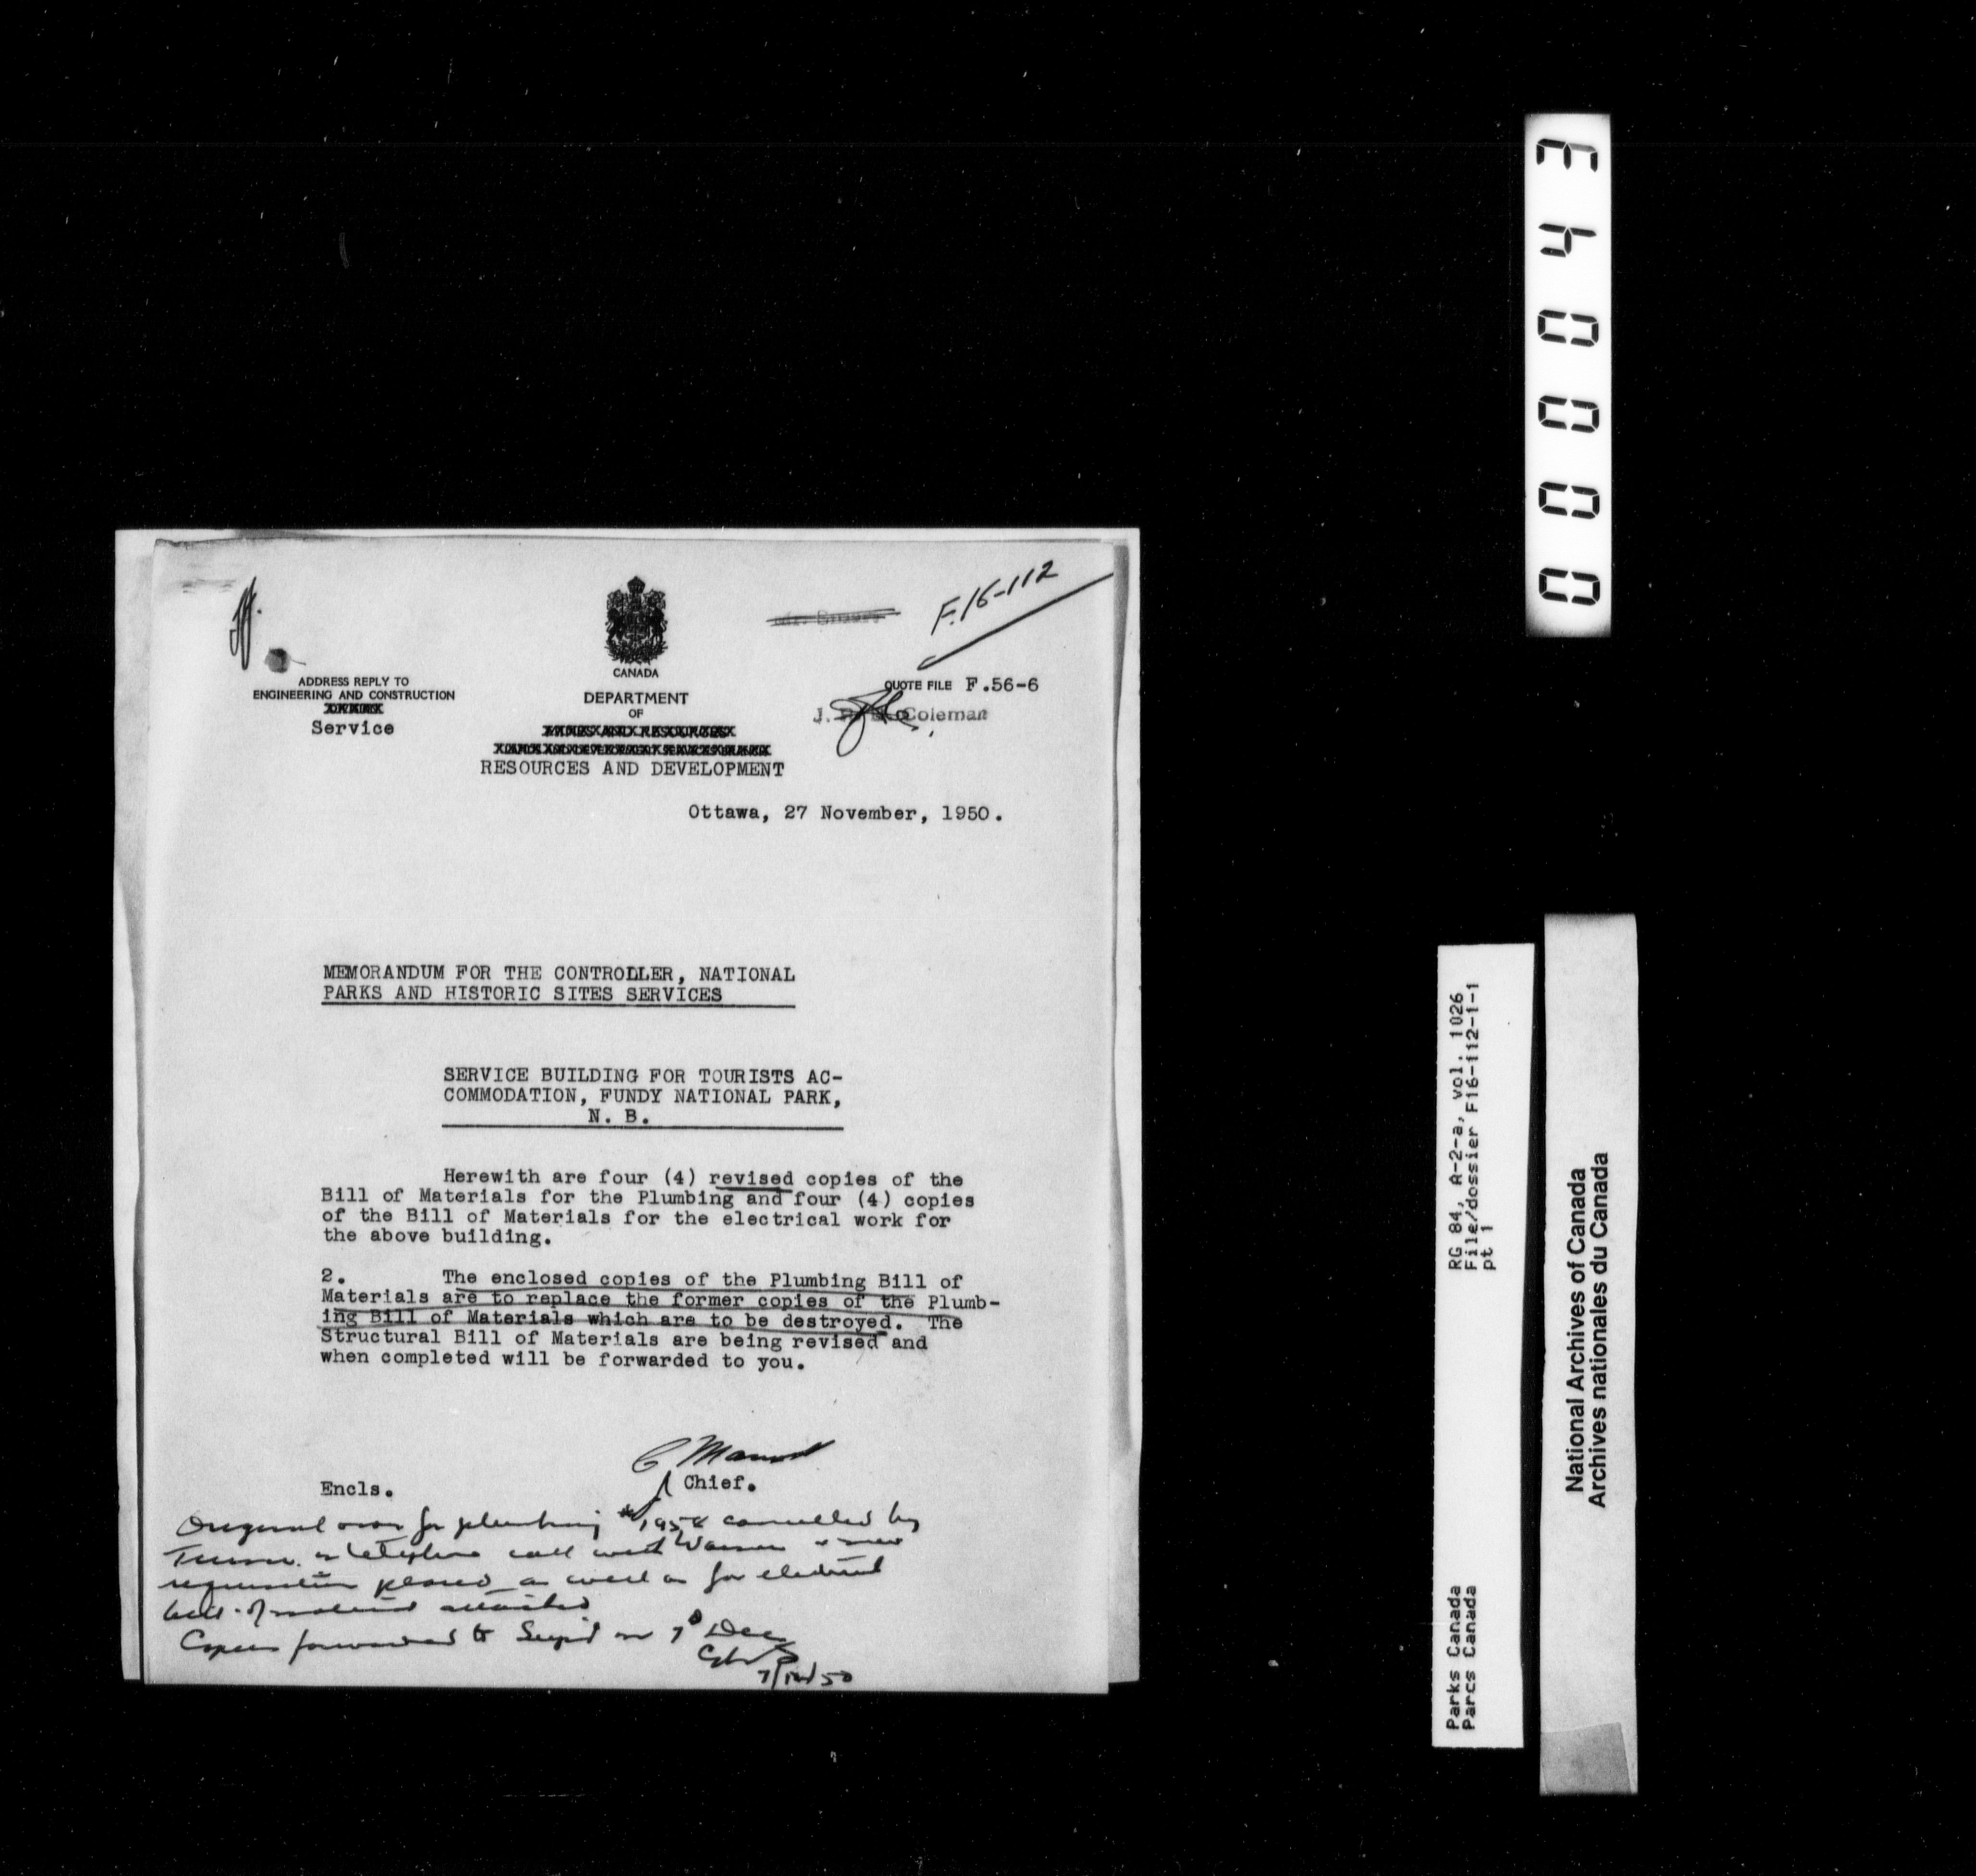 F.16-112
CANADA
ADDRESS REPLY TO
ENGINEERING AND CONSTRUCTION
Service
DEPARTMENT
OF
RESOURCES AND DEVELOPMENT
QUOTE FILE F.56-6
J. Coleman
Ottawa, 27 November, 1950.
MEMORANDUM FOR THE CONTROLLER, NATIONAL
PARKS AND HISTORIC SITES SERVICES
SERVICE BUILDING FOR TOURISTS AC-
COMMODATION, FUNDY NATIONAL PARK,
N. B.
Herewith are four (4) revised copies of the
Bill of Materials for the Plumbing and four (4) copies
of the Bill of Materials for the electrical work for
the above building.
2. The enclosed copies of the Plumbing Bill of
Materials are to replace the former copies of the Plumb-
ing Bill of Materials which are to be destroyed. The
Structural Bill of Materials are being revised and
when completed will be forwarded to you.
Chief.
Encls.
Original for plumbing cancelled by
call with &
requisition placed as well as for electrical
bill of material attached
Copies forwarded to Supt on 7 Dec
7/12/50
000043
RG 84, A-2-a, vol. 1026
File/dossier F16-112-1-1
pt 1
Parks Canada
Parcs Canada
National Archives of Canada
Archives nationales du Canada